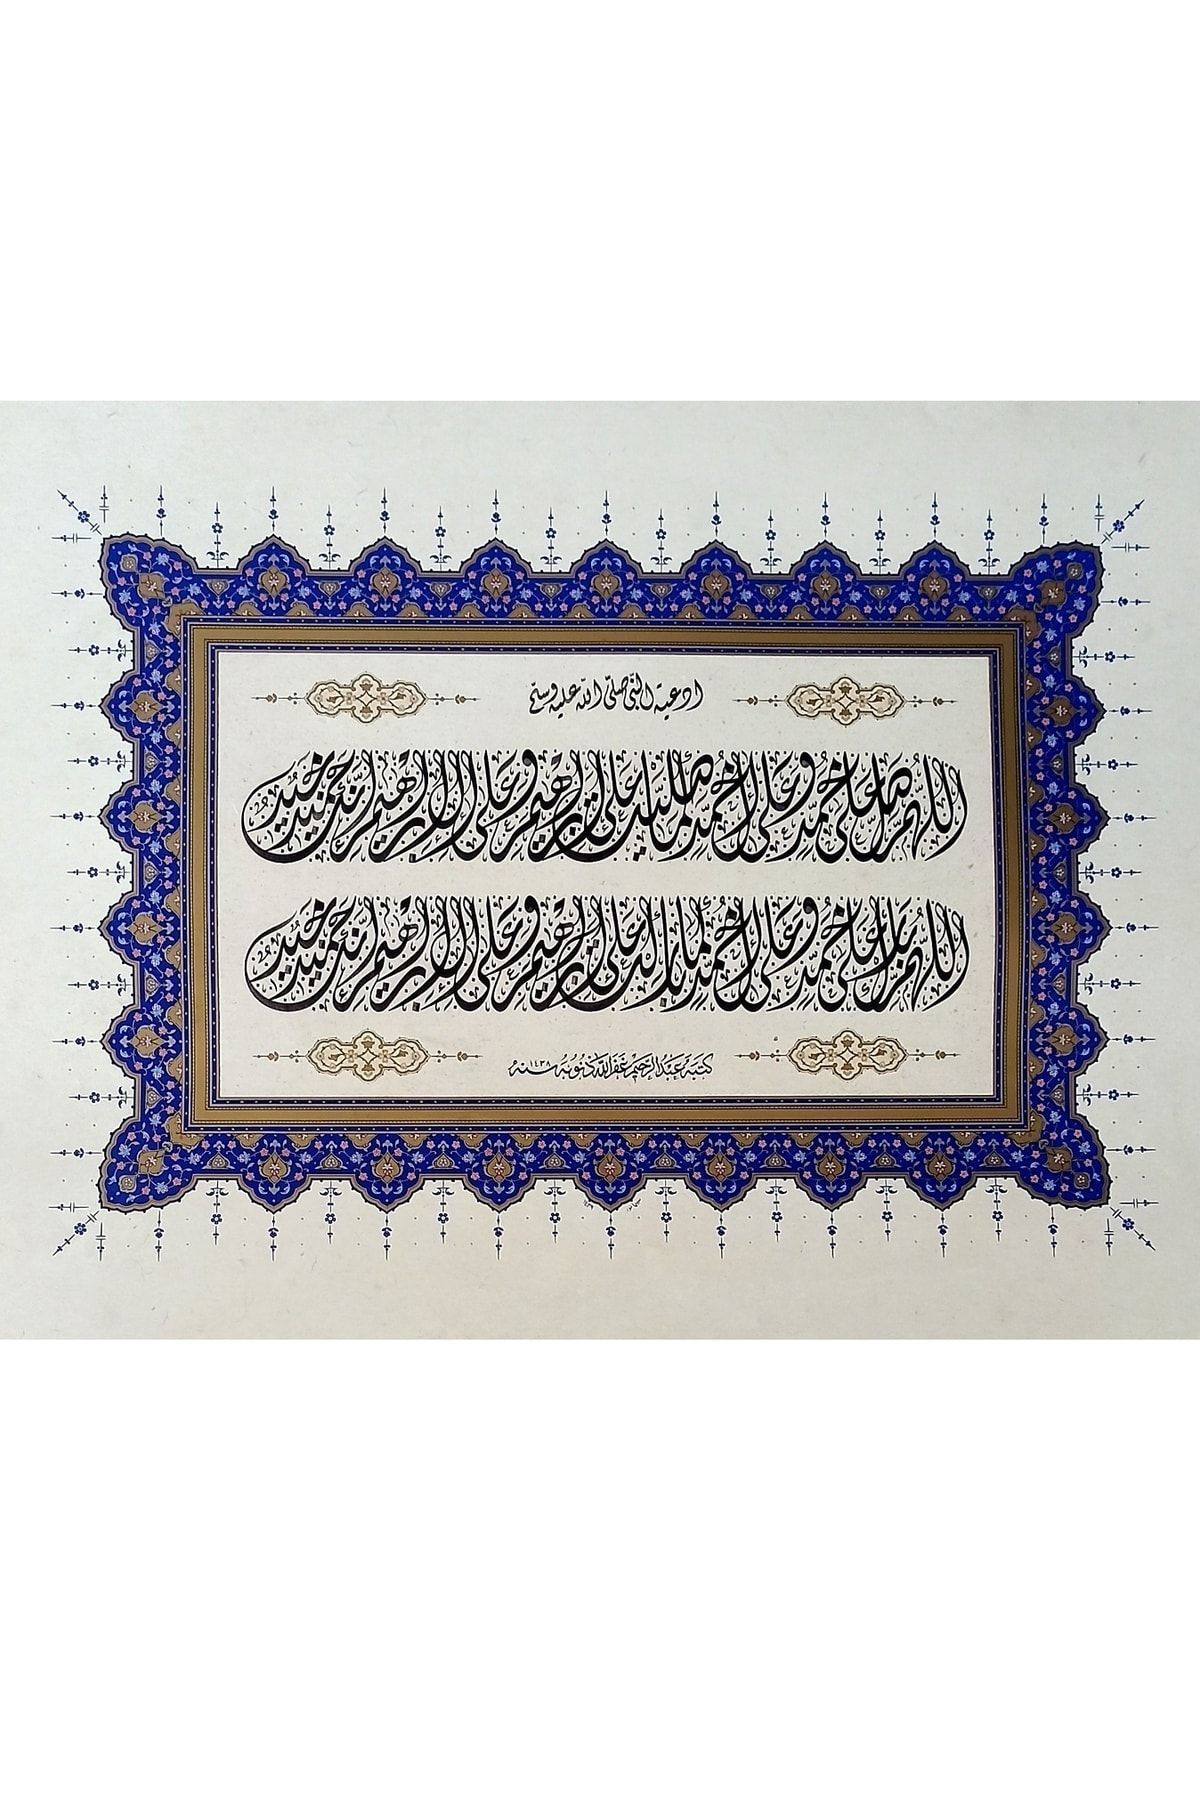 ادعية النبي صلى الله عليه وسلم
اللهم صل على محمد وعلى آل محمد كما صليت على إبراهيم وعلى آل إبراهيم إنك حميد مجيد
اللهم بارك على محمد وعلى آل محمد كما باركت على إبراهيم وعلى آل إبراهيم إنك حميد مجيد
كتبه عبد الرحيم غفر الله ذنوبه سنة ١٤٣٨